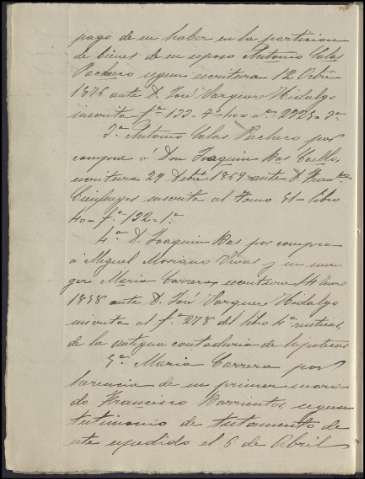 pago de su haber en la particion
de bienes de su esposo Antonio Salas
Pacheco segun escritura 12 Octbre
1876 ante D. José Vazquez Hidalgo
inscrita fº 133 4º libro nº 2223 2ª
3ª Antonio Salas Pacheco por
compra a Don Joaquin Bas
escritura 29 1859 ante D.
inscrita al tomo 51 libro
40 fº 132 1ª
4ª D. Joaquin Bas por compra
a Miguel Moriano Vivas y su mu
ger Maria Carrera escritura
1858 ante D. José Vazquez Hidalgo
inscrita al fº 278 del libro 4º rusticas
de la antigua contaduria de hipotecas
5ª Maria Carrera por
herencia de su primer mari
do Francisco Barrientos segun
testimonio de testamento de
este espedido el 6 de Abril